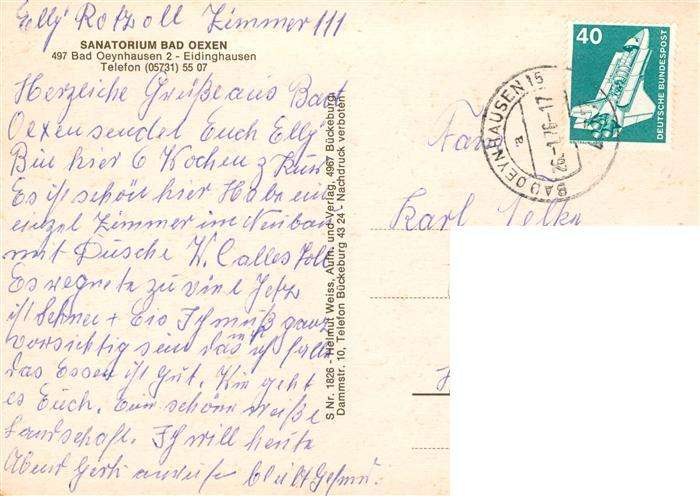 Elly Rotzoll Zimmer 111
SANATORIUM BAD OEXEN
497 Bad Oeynhausen 2 - Eidinghausen
Telefon (05731) 55 07
Herzliche Grüße aus Bad
Oexen sendet Euch Elly
Bin hier 6 Wochen z Kur
Es ist schön hier Habe ein
einzel Zimmer im Neubau
mit Dusche W. C alles toll
Es regnet zu viel Jetz
ist Schnee + Eis Ich muß ganz
vorsichtig sein das ich falle
das Essen ist gut. Wie geht
es Euch. Eine schöne weiße
Landschaft. Ich will heute
Abend Gerti anrufen bleibt Gesund.
S Nr. 1826 - Helmut Weiss, Aufn. und Verlag, 4967 Bückeburg
Dammstr. 10, Telefon Bückeburg 43 24 - Nachdruck verboten
40
DEUTSCHE BUNDESPOST
BAD OEYNHAUSEN 15
26.-1.78-17
a
Fam
Karl